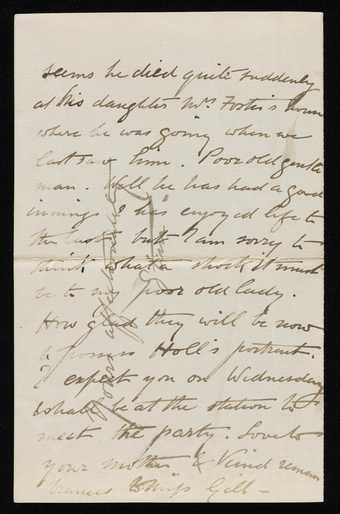 seems he died quite suddenly
at his daughter Mrs Foster's home
where he was going when we
last saw him. Poor old gentle
man. Well he has had a good
innings & has enjoyed life to
the last but I am sorry to
think what a shock it must
be to my poor old lady.
How glad they will be now
to possess Holl's portrait.
I expect you on Wednesday
& shall be at the station to
meet the party. Love to
your mother & kind remem
brances to Miss Gill -